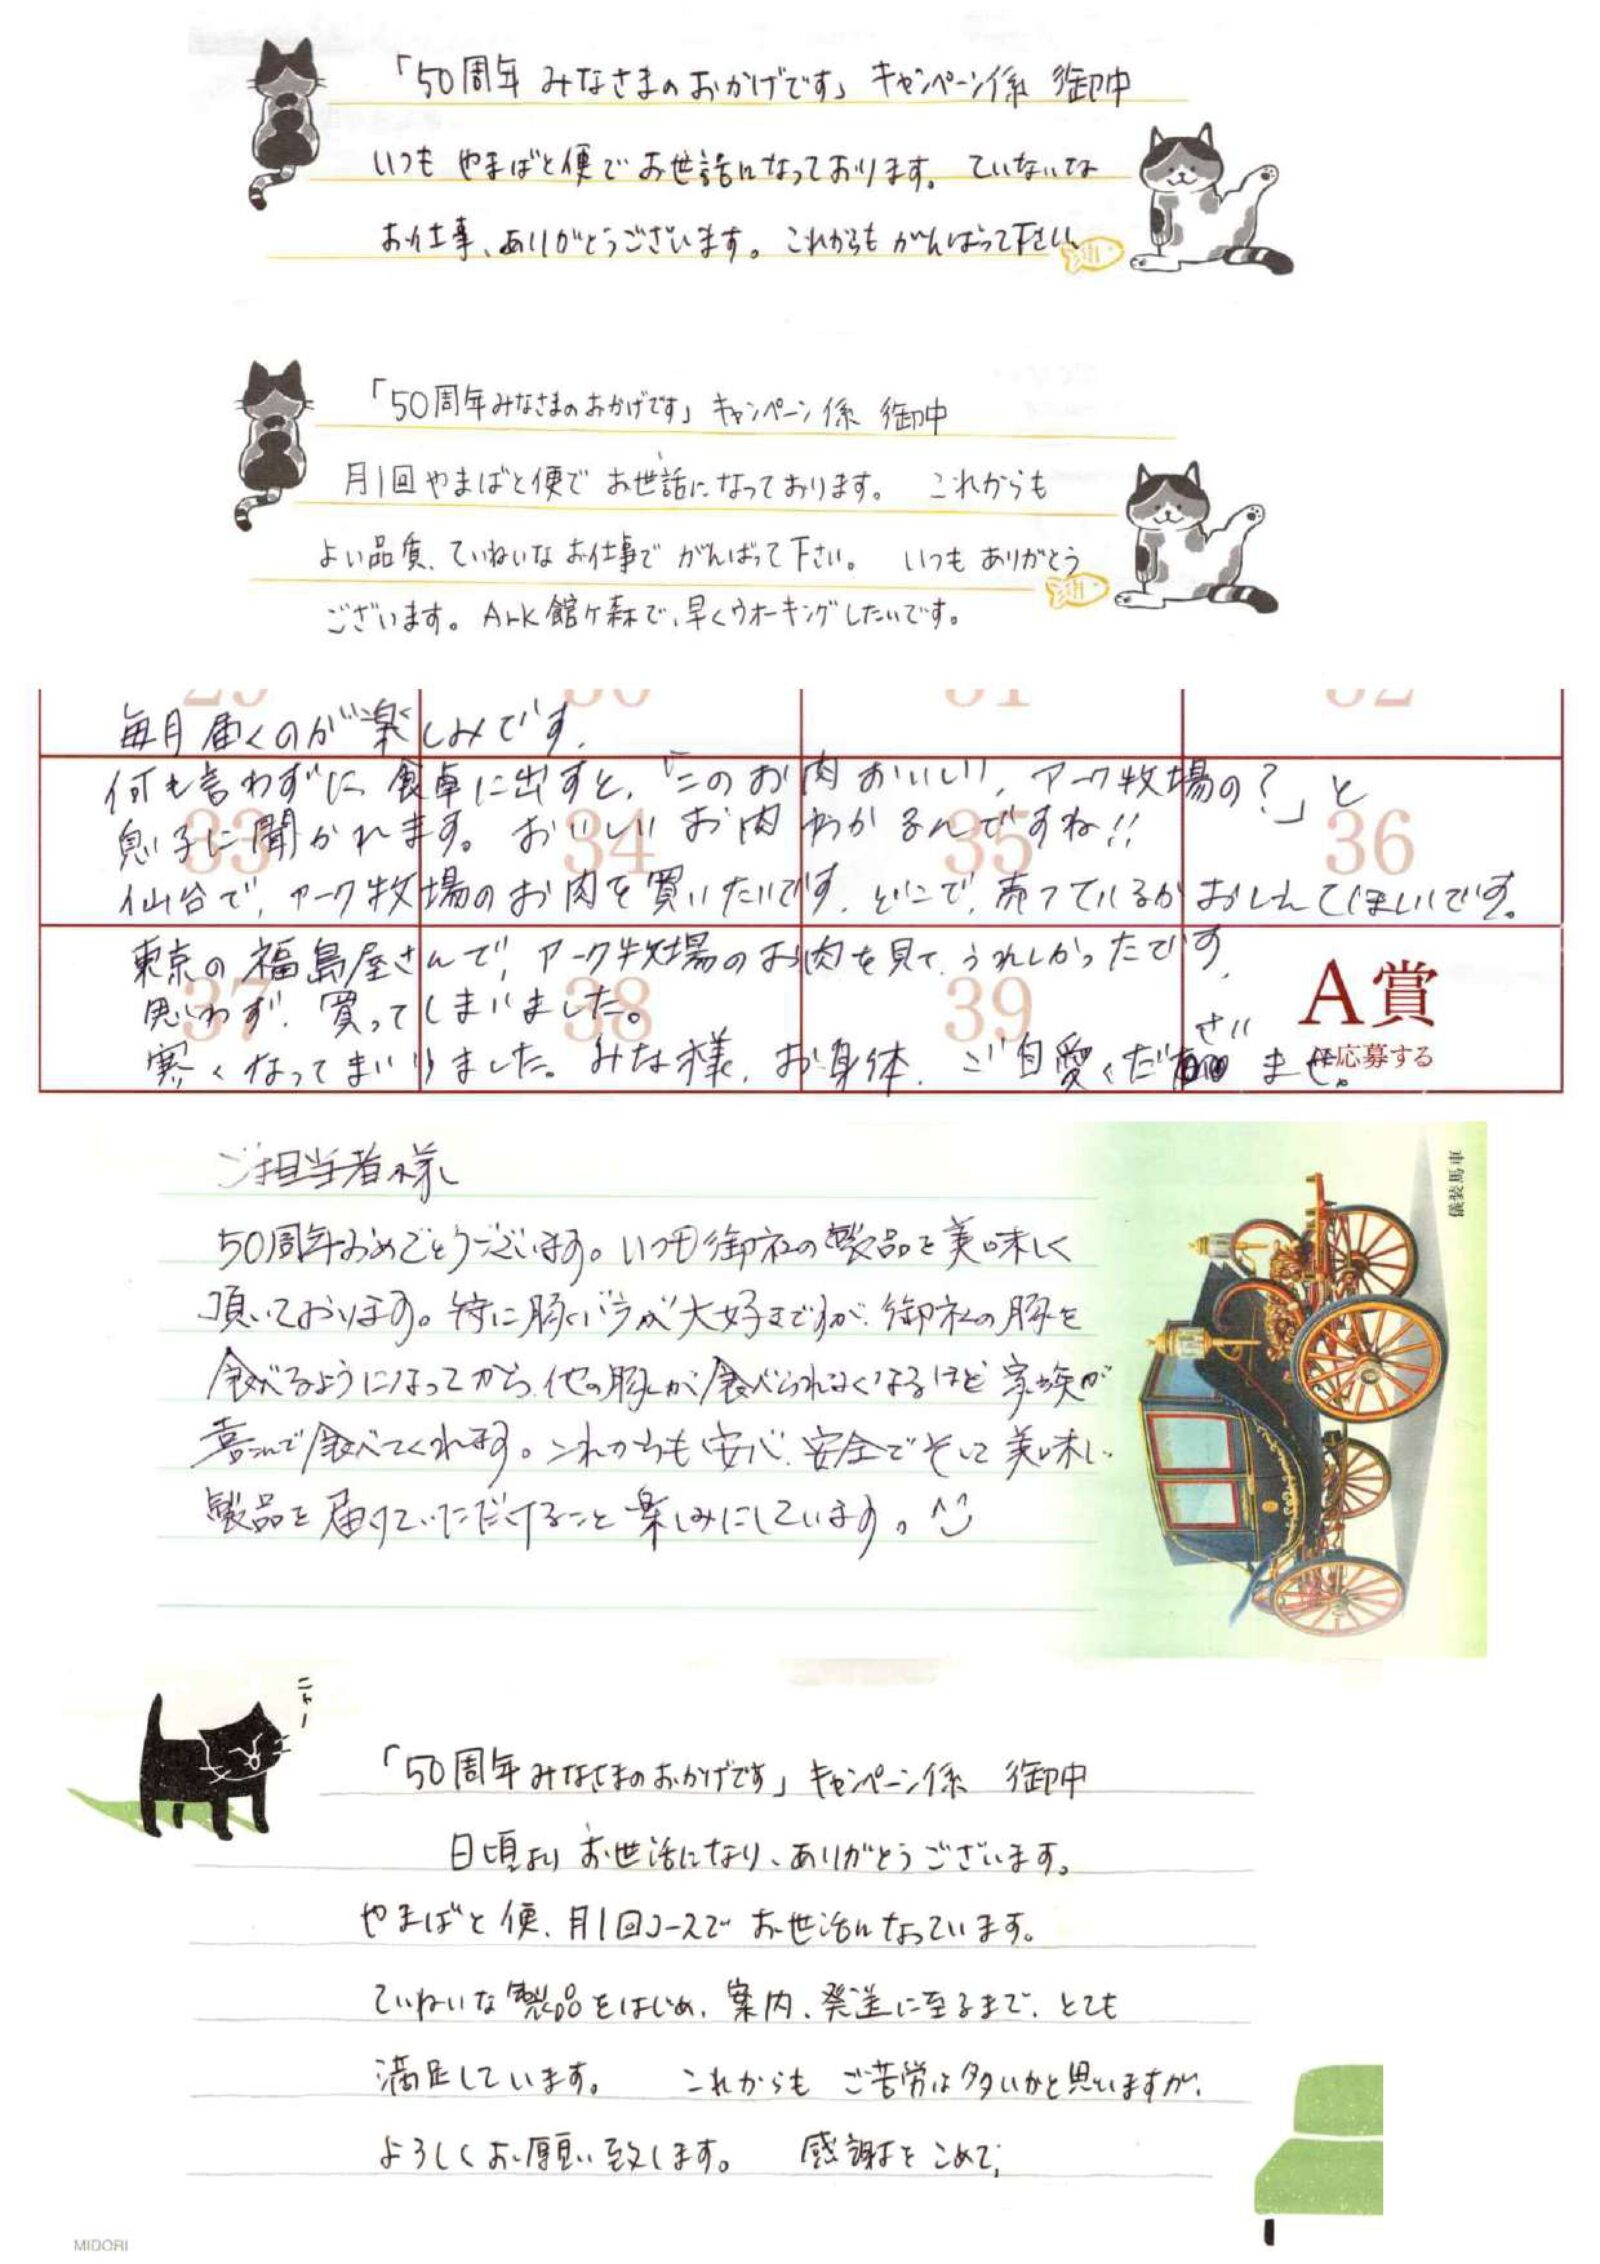 「50周年 みなさまのおかげです」 キャンペーン係 御中
いつも やまばと便で お世話になっております。 ていねいな
お仕事、ありがとうございます。 これからも がんばって下さい。
「50周年みなさまのおかげです」 キャンペーン係 御中
月1回やまばと便で お世話になっております。 これからも
よい品質、ていねいな お仕事で がんばって下さい。 いつも ありがとう
ございます。 Ark館ヶ森で、早くウオーキングしたいです。
29 30 31 32
毎月届くのが楽しみです.
何も言わずに食卓に出すと,「このお肉おいしい, アーク牧場の?」と
息子に聞かれます。 おいしいお肉わかるんですね!!
33 34 35 36
仙台で, アーク牧場のお肉を買いたいです. どこで, 売っているかおしえてほしいです。
東京の福島屋さんで, アーク牧場のお肉を見て, うれしかったです.
思わず, 買ってしまいました。
37 38 39
A賞
に応募する
寒くなってまいりました。みな様, お身体, ご自愛くださいませ。
ご担当者様
50周年おめでとうございます。いつも御社の製品を美味しく
頂いております。特に豚バラが大好きですが、御社の豚を
食べるようになってから、他の豚が食べられなくなるほど家族が
喜んで食べてくれます。これからも安心、安全でそして美味しい
製品を届けていただけること楽しみにしています。^^
儀装馬車
ニャー
「50周年みなさまのおかげです」 キャンペーン係 御中
日頃より お世話になり、ありがとうございます。
やまばと便、月1回コースで お世話になっています。
ていねいな製品をはじめ、案内、発送に至るまで、とても
満足しています。 これからも ご苦労は多いかと思いますが、
よろしくお願い致します。 感謝をこめて,
MIDORI